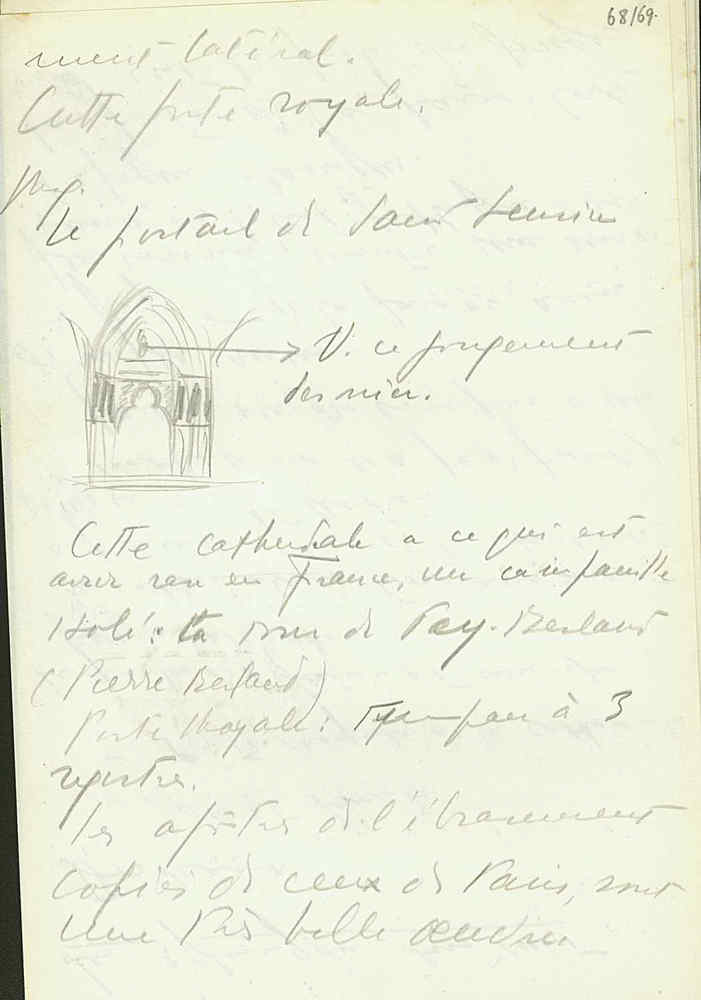 68/69.
ment latéral.
Cette porte royale.
Le portail de Saint Seurin
V. ce jugement
dernier.
Cette cathédrale a ce qui est
assez rare en France, un campanile
isolé : la tour de Pey-Berland
(Pierre Berland)
Porte Royale : Tympan à 3
registres.
Les apôtres de l'ébrasement
copiés de ceux de Paris, sont
une très belle œuvre.